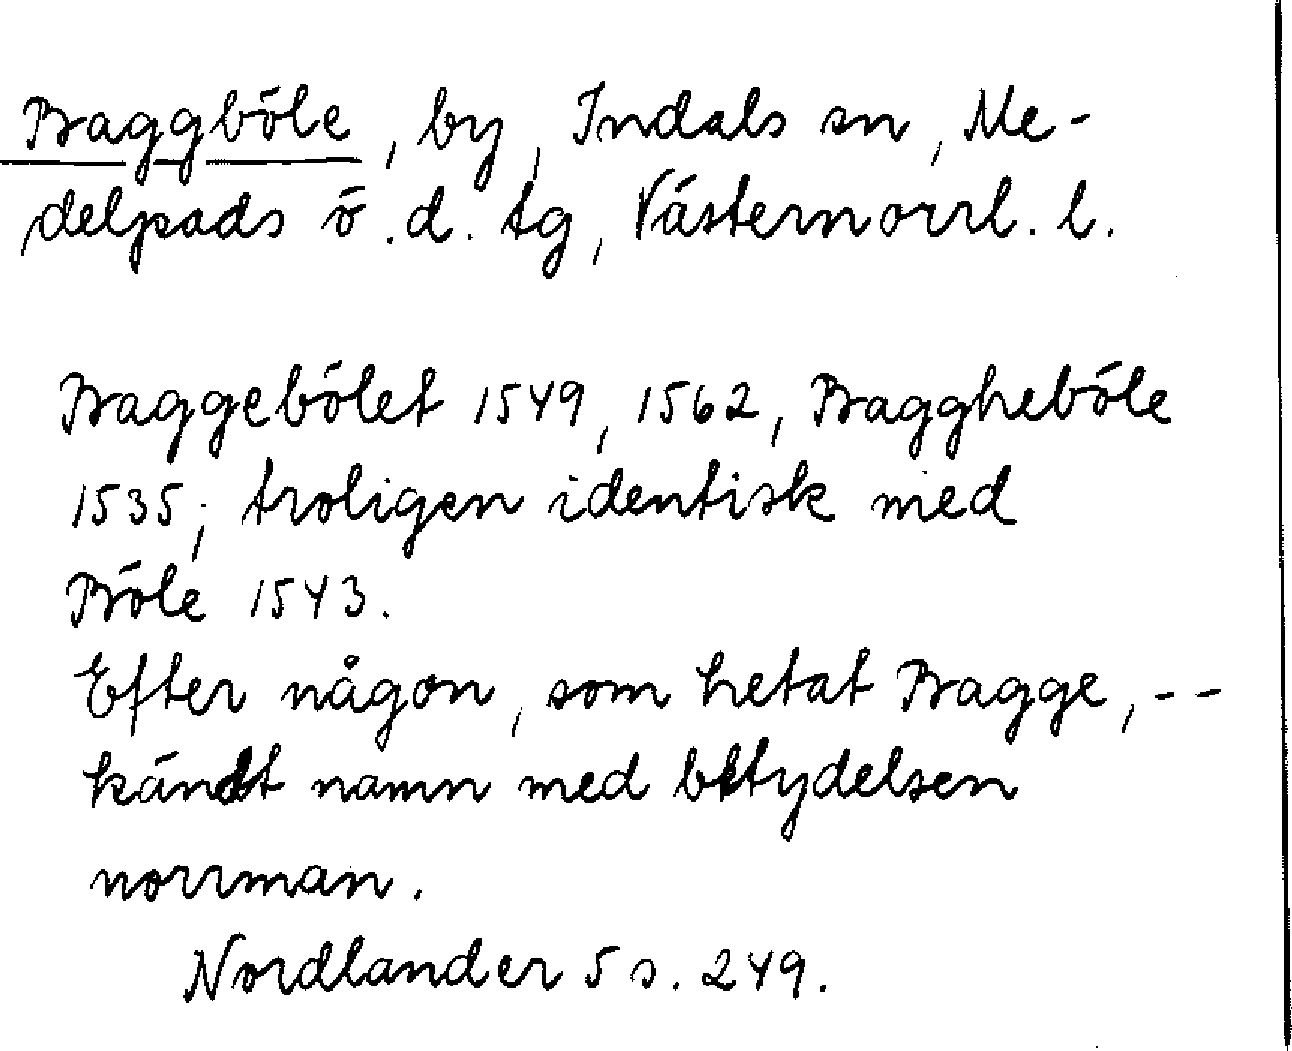 Baggböle, by, Indals sn, Me-
delpads ö.d. tg, Västernorrl. l.
Baggebölet 1549, 1562, Baggheböle
1535; troligen identisk med
Böle 1543.
Efter någon, som hetat Bagge, --
kändt namn med betydelsen
norrman.
Nordlander 5 s. 249.